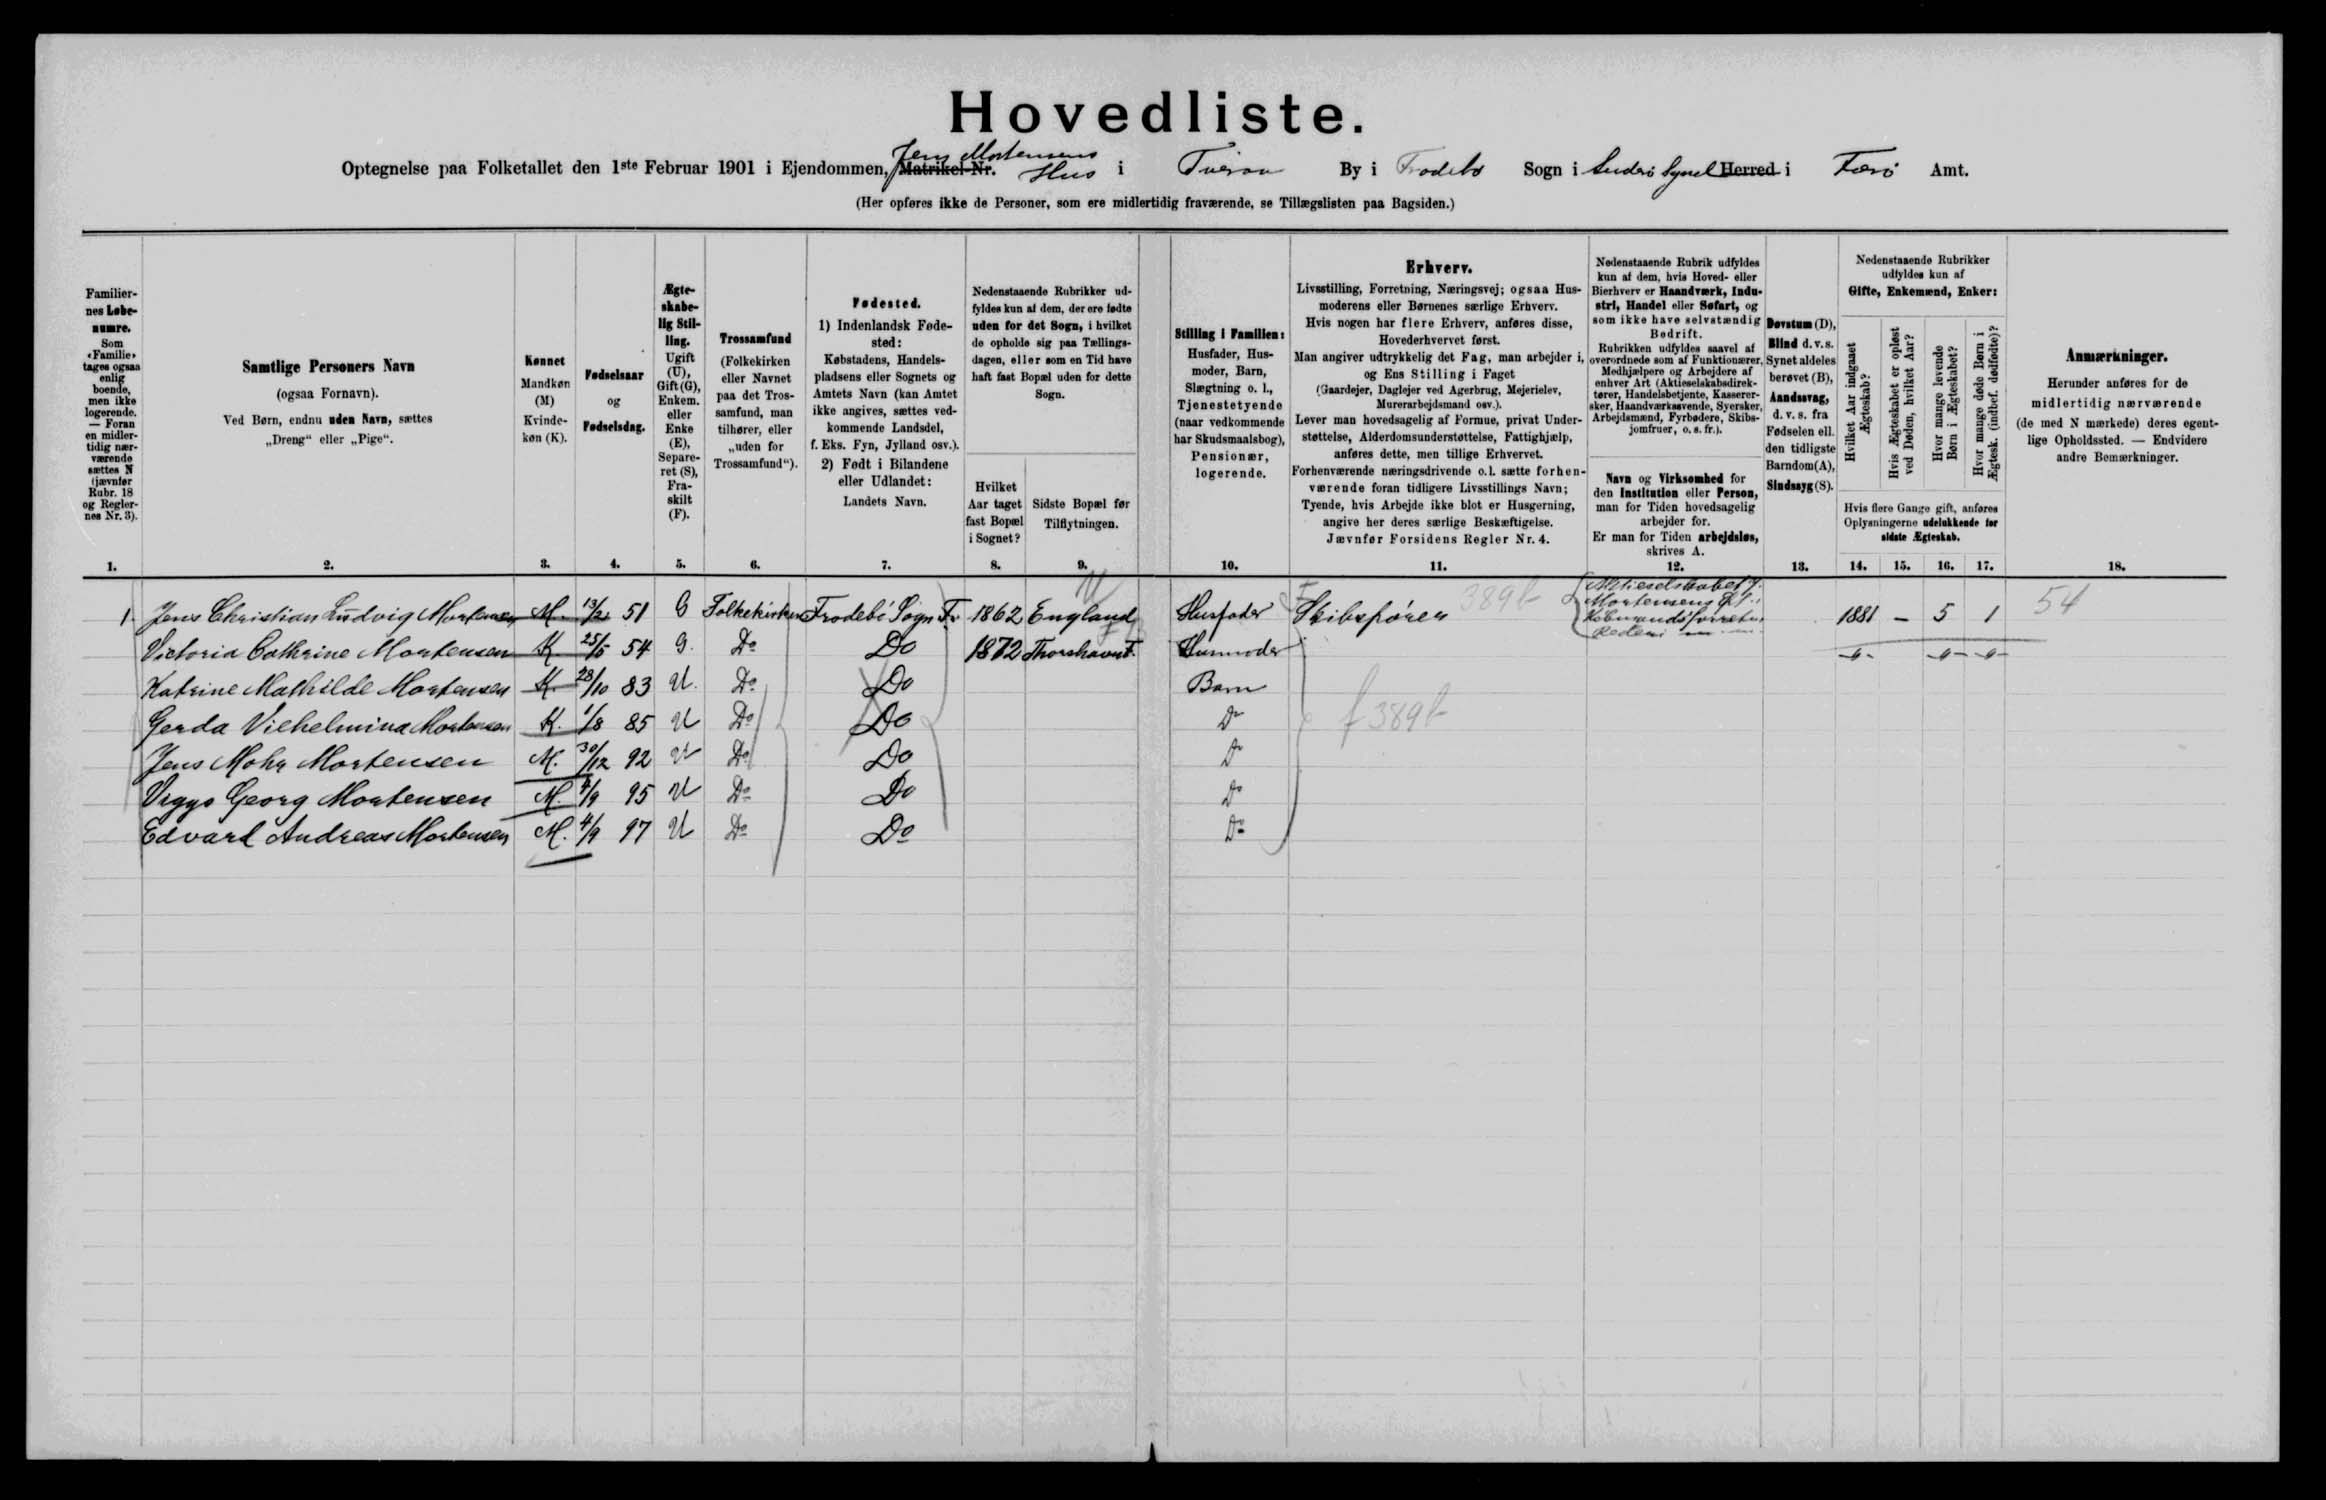 Hovedliste.
Jens Mortensens
Optegnelse paa Folketallet den 1ste Februar 1901 i Ejendommen, Matrikel-Nr. Hus i Tveraa By i Frodebö Sogn i Suderö Syssel Herred i Færö Amt.
(Her opføres ikke de Personer, som ere midlertidig fraværende, se Tillægslisten paa Bagsiden.)
Familier-
nes Løbe-
numre.
Som
«Familie»
tages ogsaa
enlig
boende,
men ikke
logerende.
— Foran
en midler-
tidig nær-
værende
sættes N
(jævnfør
Rubr. 18
og Regler-
nes Nr. 3).
1.
Samtlige Personers Navn
(ogsaa Fornavn).
Ved Børn, endnu uden Navn, sættes
„Dreng“ eller „Pige“.
2.
Kønnet
Mandkøn
(M)
Kvinde-
køn (K).
3.
Fødselsaar
og
Fødselsdag.
4.
Ægte-
skabe-
lig Stil-
ling.
Ugift
(U),
Gift (G),
Enkem.
eller
Enke
(E),
Separe-
ret (S),
Fra-
skilt
(F).
5.
Trossamfund
(Folkekirken
eller Navnet
paa det Tros-
samfund, man
tilhører, eller
„uden for
Trossamfund“).
6.
Fødested.
1) Indenlandsk Føde-
sted:
Købstadens, Handels-
pladsens eller Sognets og
Amtets Navn (kan Amtet
ikke angives, sættes ved-
kommende Landsdel,
f. Eks. Fyn, Jylland osv.).
2) Født i Bilandene
eller Udlandet:
Landets Navn.
7.
Nedenstaaende Rubrikker ud-
fyldes kun af dem, der ere fødte
uden for det Sogn, i hvilket
de opholde sig paa Tællings-
dagen, eller som en Tid have
haft fast Bopæl uden for dette
Sogn.
Hvilket
Aar taget
fast Bopæl
i Sognet?
8.
Sidste Bopæl før
Tilflytningen.
9.
Stilling i Familien:
Husfader, Hus-
moder, Barn,
Slægtning o. l.,
Tjenestetyende
(naar vedkommende
har Skudsmaalsbog),
Pensionær,
logerende.
10.
Erhverv.
Livsstilling, Forretning, Næringsvej; ogsaa Hus-
moderens eller Børnenes særlige Erhverv.
Hvis nogen har flere Erhverv, anføres disse,
Hovederhvervet først.
Man angiver udtrykkelig det Fag, man arbejder i,
og Ens Stilling i Faget
(Gaardejer, Daglejer ved Agerbrug, Mejerielev,
Murerarbejdsmand osv.).
Lever man hovedsagelig af Formue, privat Under-
støttelse, Alderdomsunderstøttelse, Fattighjælp,
anføres dette, men tillige Erhvervet.
Forhenværende næringsdrivende o. l. sætte forhen-
værende foran tidligere Livsstillings Navn;
Tyende, hvis Arbejde ikke blot er Husgerning,
angive her deres særlige Beskæftigelse.
Jævnfør Forsidens Regler Nr. 4.
11.
Nedenstaaende Rubrik udfyldes
kun af dem, hvis Hoved- eller
Bierhverv er Haandværk, Indu-
stri, Handel eller Søfart, og
som ikke have selvstændig
Bedrift.
Rubrikken udfyldes saavel af
overordnede som af Funktionærer,
Medhjælpere og Arbejdere af
enhver Art (Aktieselskabsdirek-
tører, Handelsbetjente, Kasserer-
sker, Haandværkssvende, Syersker,
Arbejdsmænd, Fyrbødere, Skibs-
jomfruer, o. s. fr.).
Navn og Virksomhed for
den Institution eller Person,
man for Tiden hovedsagelig
arbejder for.
Er man for Tiden arbejdsløs,
skrives A.
12.
Døvstum (D),
Blind d. v. s.
Synet aldeles
berøvet (B),
Aandssvag,
d. v. s. fra
Fødselen ell.
den tidligste
Barndom (A),
Sindssyg (S).
13.
Nedenstaaende Rubrikker
udfyldes kun af
Gifte, Enkemænd, Enker:
Hvilket Aar indgaaet
Ægteskab?
Hvis Ægteskabet er opløst
ved Døden, hvilket Aar?
Hvor mange levende
Børn i Ægteskabet?
Hvor mange døde Børn i
Ægtesk. (indbef. dødfødte)?
Hvis flere Gange gift, anføres
Oplysningerne udelukkende for
sidste Ægteskab.
14. 15. 16. 17.
Anmærkninger.
Herunder anføres for de
midlertidig nærværende
(de med N mærkede) deres egent-
lige Opholdssted. — Endvidere
andre Bemærkninger.
18.
1 Jens Christian Ludvig Mortensen M. 13/2 51 G Folkekirken Frodebö Sogn Fr 1862 England Husfader Skibsförer 389b Aktieselskabet J. Mortensens Eft. Köbmandsforretn. Rederi 1881 – 5 1 54
Victoria Cathrine Mortensen K 25/5 54 G. Do Do 1872 Thorshavn F. Husmoder -"- -"- -"-
Katrine Mathilde Mortensen K. 28/10 83 U. Do Do Barn
Gerda Vilhelmina Mortensen K. 1/8 85 U Do Do Do f 389b
Jens Mohr Mortensen M. 30/12 92 U Do Do Do
Viggo Georg Mortensen M. 4/9 95 U Do Do Do
Edvard Andreas Mortensen M. 4/9 97 U Do Do Do